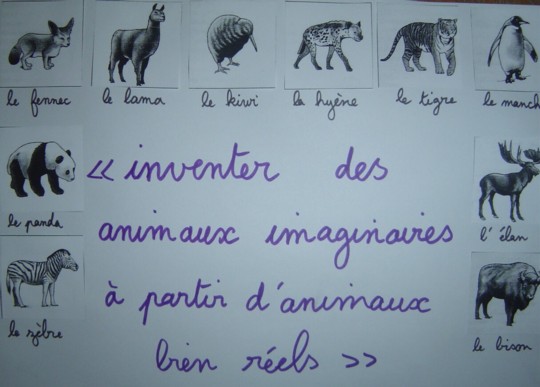 le fennec le lama le kiwi la hyène le tigre le manch
le panda
« inventer des
animaux imaginaires
l'élan
à partir d'animaux
bien réels »
le zèbre
le bison